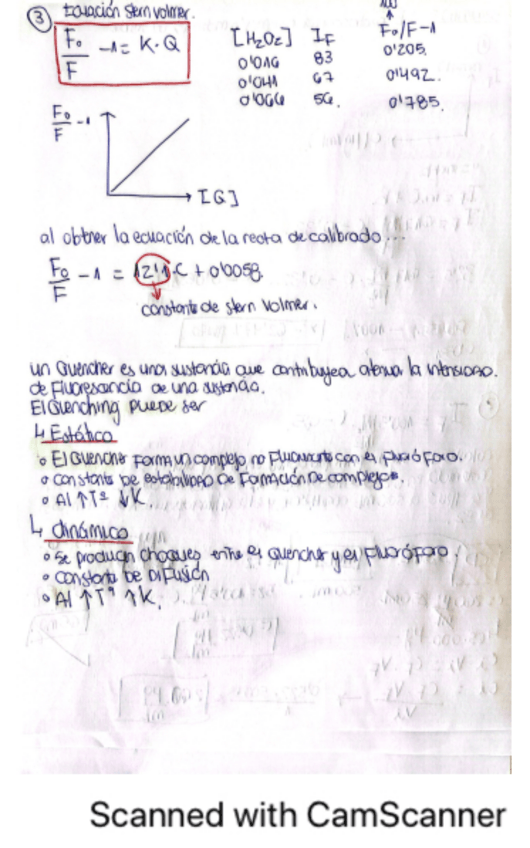 ③ Ecuación Stern volmer.
F₀/F -1 = K·Q
[H₂O₂] I_F F₀/F-1
0'016 83 0'205
0'041 67 0'492.
0'066 56. 0'785.
F₀/F -1
[Q]
al obtner la ecuación de la recta de calibrado...
F₀/F - 1 = 12'1·C + 0'0058
constante de stern volmer.
un Quencher es una sustancia que contribuye a atenua la intensidad.
de Fluorescencia de una sustancia.
El Quenching puede ser
↳ Estático
• El Quencher Forma un complejo no Fluorescente con el fluoróforo.
• constante de estabilidad de Formación de complejos.
• Al ↑Tª ↓K.
↳ dinámico
• se producen choques entre el quencher y el Fluoróforo.
• constante de Difusión
• Al ↑Tª ↑K.
Scanned with CamScanner